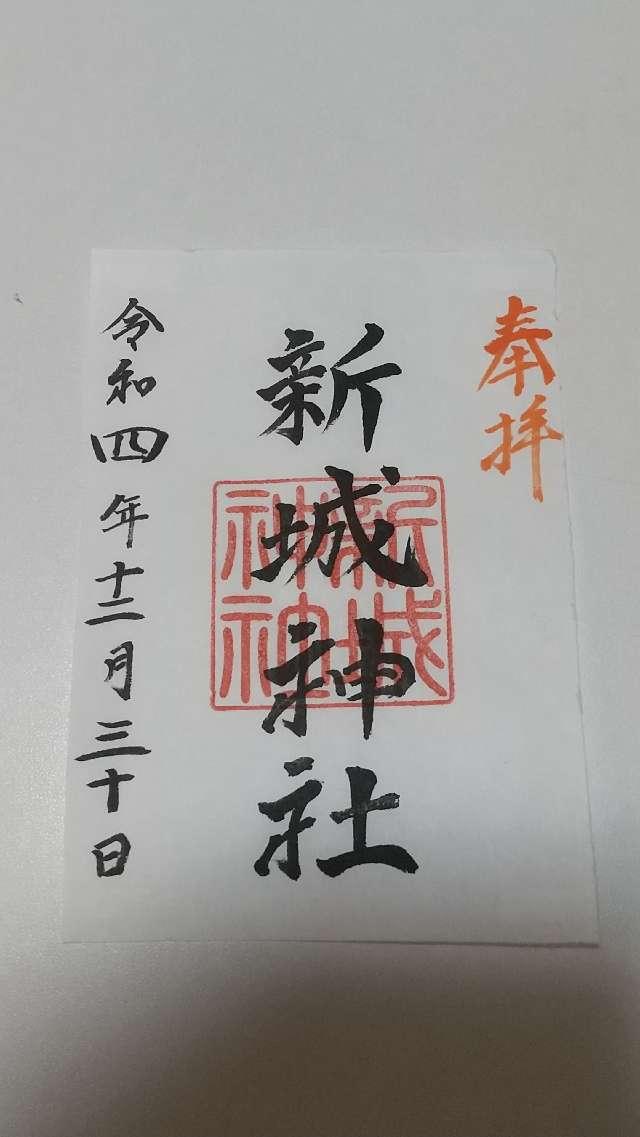 奉拝
新城神社
新城
神社
令和四年十二月三十日